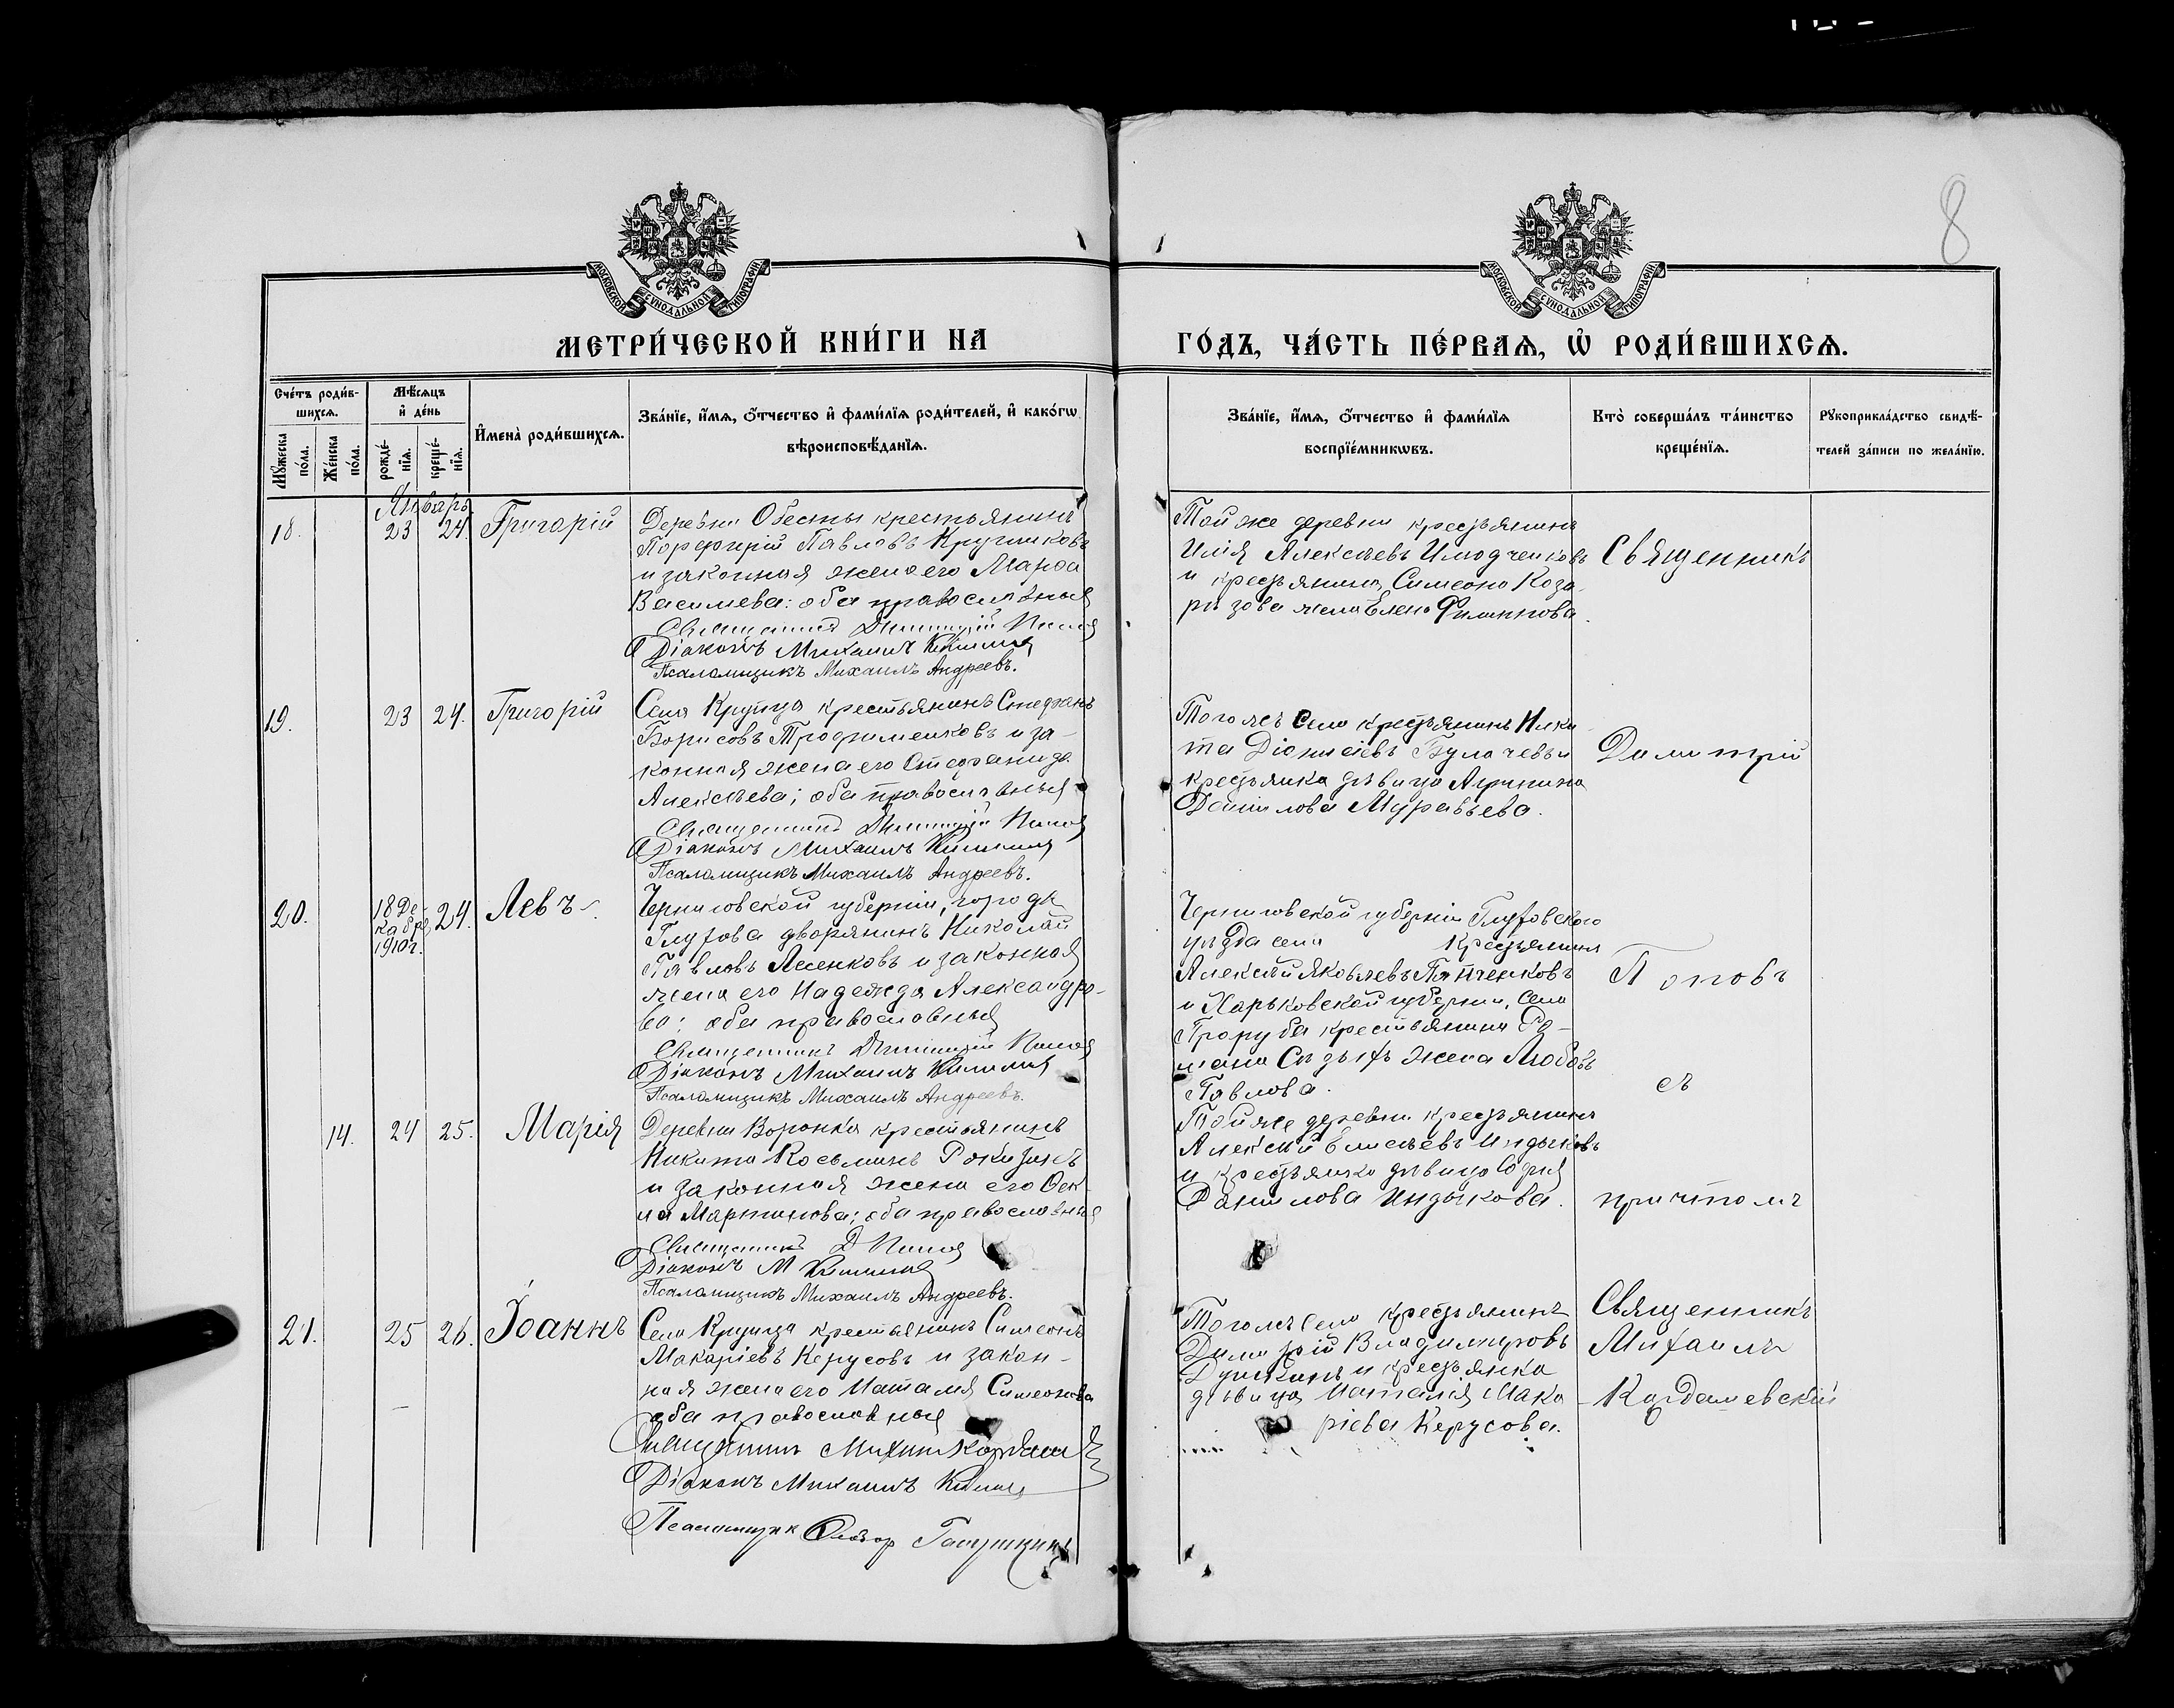 8
МОСКОВСКОЙ СѴНОДАЛЬНОЙ ТИПОГРАФІИ.
МОСКОВСКОЙ СѴНОДАЛЬНОЙ ТИПОГРАФІИ.
МЕТРИ́ЧЕСКОЙ КНИ́ГИ НА ГО́ДЪ, ЧА́СТЬ ПЕ́РВАѦ, Ѡ҆ РОДИ́ВШИХСѦ.
Сче́тъ роди́в-
шихсѧ.
Мꙋ́жеска
по́ла.
Же́нска
по́ла.
Мѣ́сѧцъ
и҆ де́нь
рожде́-
нїѧ.
креще́-
нїѧ.
И҆мена̀ роди́вшихсѧ.
Зва́нїе, и҆́мѧ, ѻ҆́тчество и҆ фами́лїѧ роди́телей, и҆ како́гѡ
вѣроисповѣ́данїѧ.
Зва́нїе, и҆́мѧ, ѻ҆́тчество и҆ фами́лїѧ
воспрїе́мникѡвъ.
Кто̀ соверша́лъ та́инство
креще́нїѧ.
Рꙋкоприкла́дство свидѣ́-
телей за́писи по жела́нїю.
Январь.
18.
23
24.
Григорій
Деревни Обесты крестьянинъ
Порфирій Павловъ Кругликовъ
и законная жена его Марѳа
Васильева: оба православныя
Священникъ Димитрій Поповъ
Діаконъ Михаилъ
Псаломщикъ Михаилъ Андреевъ.
Той же деревни крестьянинъ
Илія Алексѣевъ
и крестьянина Симеона Коза-
рѣзова жена Елена Филиппова.
Священникъ
19.
23
24.
Григорій
Села Крупца крестьянинъ Стефанъ
Борисовъ Трофименковъ и за-
конная жена его Стефанида
Алексѣева; оба православныя
Священникъ Димитрій Поповъ
Діаконъ Михаилъ
Псаломщикъ Михаилъ Андреевъ.
Тогожъ села крестьянинъ Ники-
та Діонисіевъ Булачевъ и
крестьянка дѣвица Агриппина
Данилова Муравьева.
Димитрій
20.
18 Де-
кабря
1910 г.
24.
Левъ
Черниговской губерніи, города
Глухова дворянинъ Николай
Павловъ Лесенковъ и законная
жена его Надежда Александро-
ва: оба православныя
Священникъ Димитрій Поповъ
Діаконъ Михаилъ
Псаломщикъ Михаилъ Андреевъ.
Черниговской губерніи Глуховского
уѣзда села крестьянинъ
Алексѣй Яковлевъ Панченковъ
и Харьковской губерніи, села
Проруба крестьянина Ро-
мана жена Любовь
Павлова.
Поповъ
съ
14.
24
25.
Марія
Деревни Воронка крестьянинъ
Никита Косьминъ
и законная жена его Ѳек-
ла Мартинова; оба православныя
Священникъ Д Поповъ
Діаконъ М
Псаломщикъ Михаилъ Андреевъ.
Той же деревни крестьянинъ
Алексѣй Елисѣевъ Индыковъ
и крестьянка дѣвица Софія
Данилова Индыкова.
причтомъ
21.
25
26.
Іоаннъ
Села Крупца крестьянинъ Симеонъ
Макаріевъ Керусовъ и закон-
ная жена его Наталія Симеонова
оба православныя
Священникъ Михаилъ
Діаконъ Михаилъ
Псаломщикъ
Тогожъ села крестьянинъ
Димитрій Владиміровъ
и крестьянка
дѣвица Наталія Мака-
ріева Керусова.
Священникъ
Михаилъ
Кардашевскій